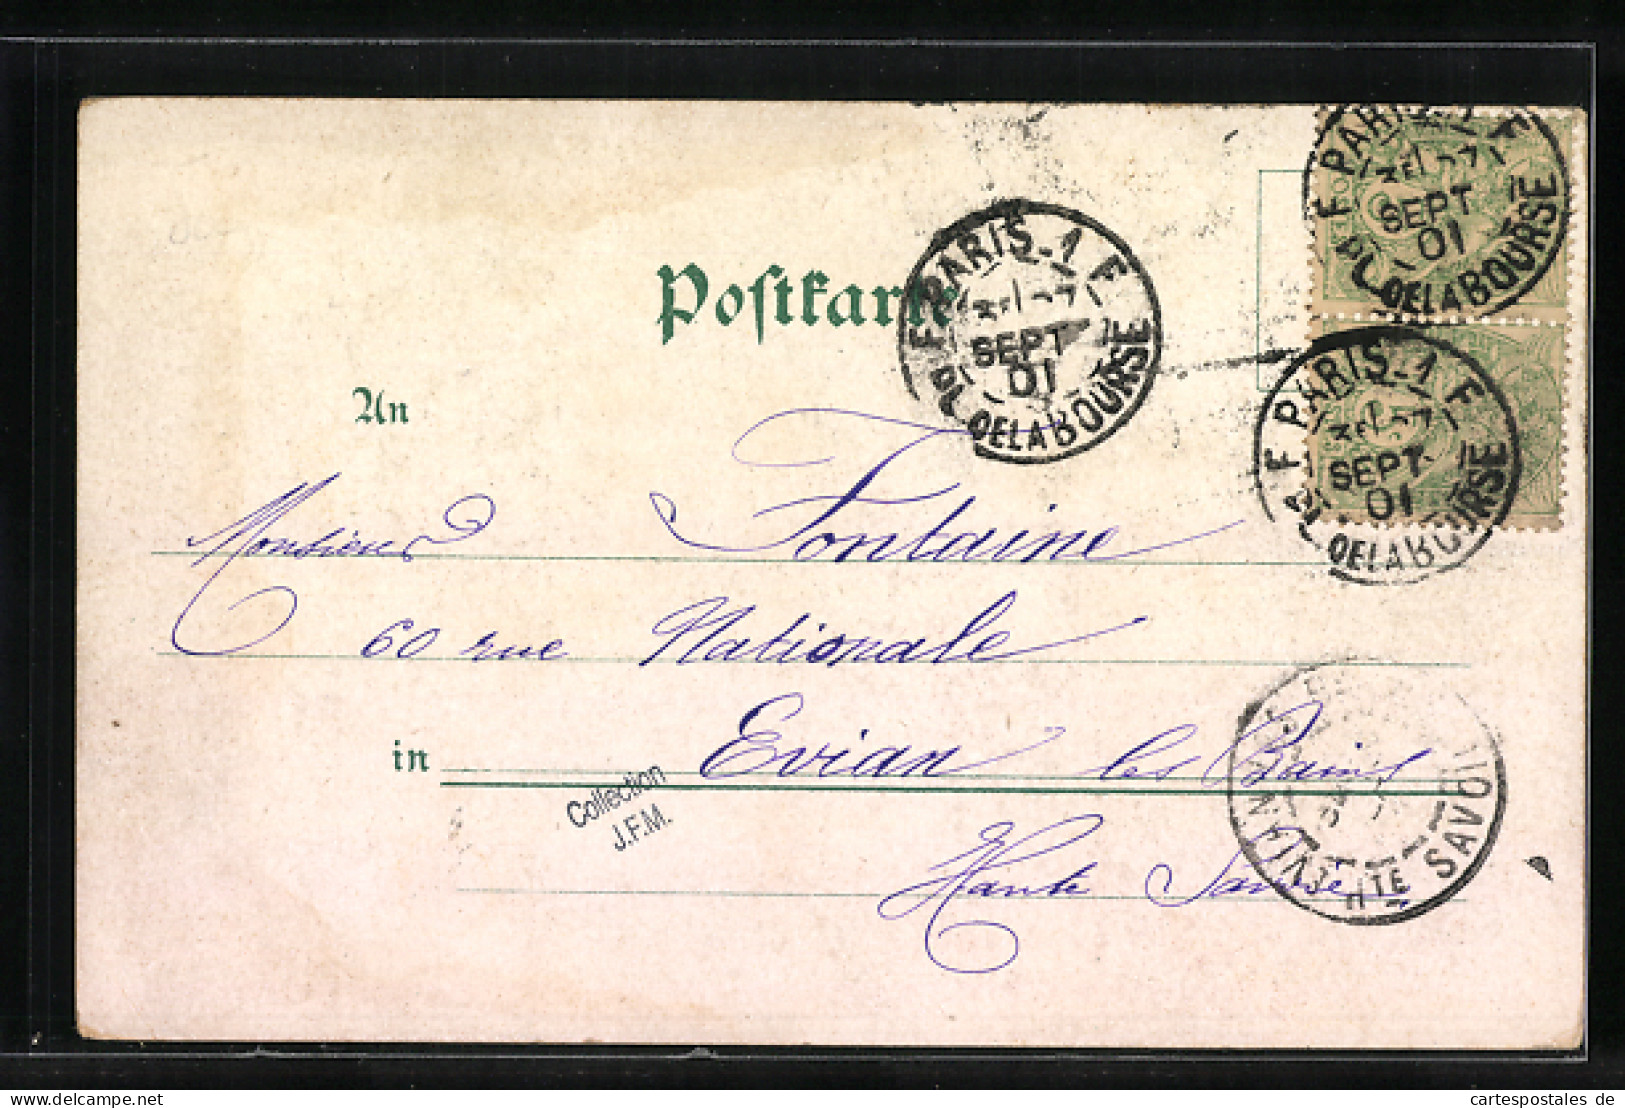 Postkarte
PARIS-1
SEPT
01
PL. DE LA BOURSE
PARIS-1
SEPT
01
PL. DE LA BOURSE
PARIS-1
SEPT
01
PL. DE LA BOURSE
An
Monsieur Fontaine
60 rue Nationale
in Evian les Bains
Haute Savoie
Collection
J.F.M.
HTE SAVOIE
delcampe.net
cartespostales de